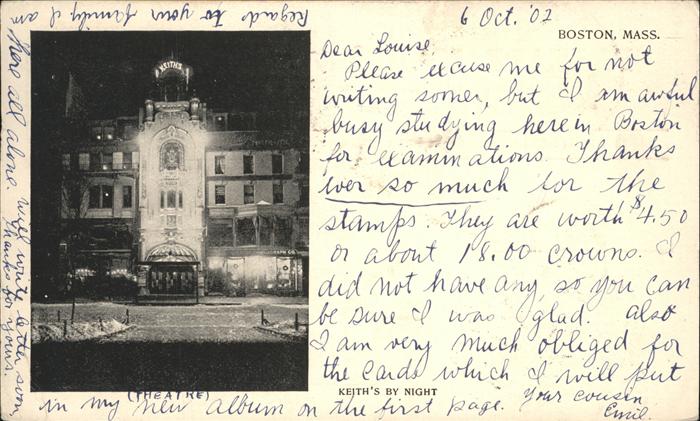 6 Oct. '02
BOSTON, MASS.
Dear Louise,
Please excuse me for not
writing sooner, but I am awful
busy studying here in Boston
for examinations. Thanks
ever so much for the
stamps. They are worth $4.50
or about 18.00 crowns. I
did not have any, so you can
be sure I was glad. also
I am very much obliged for
the cards which I will put
in my new album on the first page. Your cousin
Emil.
KEITH'S BY NIGHT
(THEATRE)
KEITH'S
Regards to your family. I am
here all alone. Will write letter soon.
Thanks for yours.